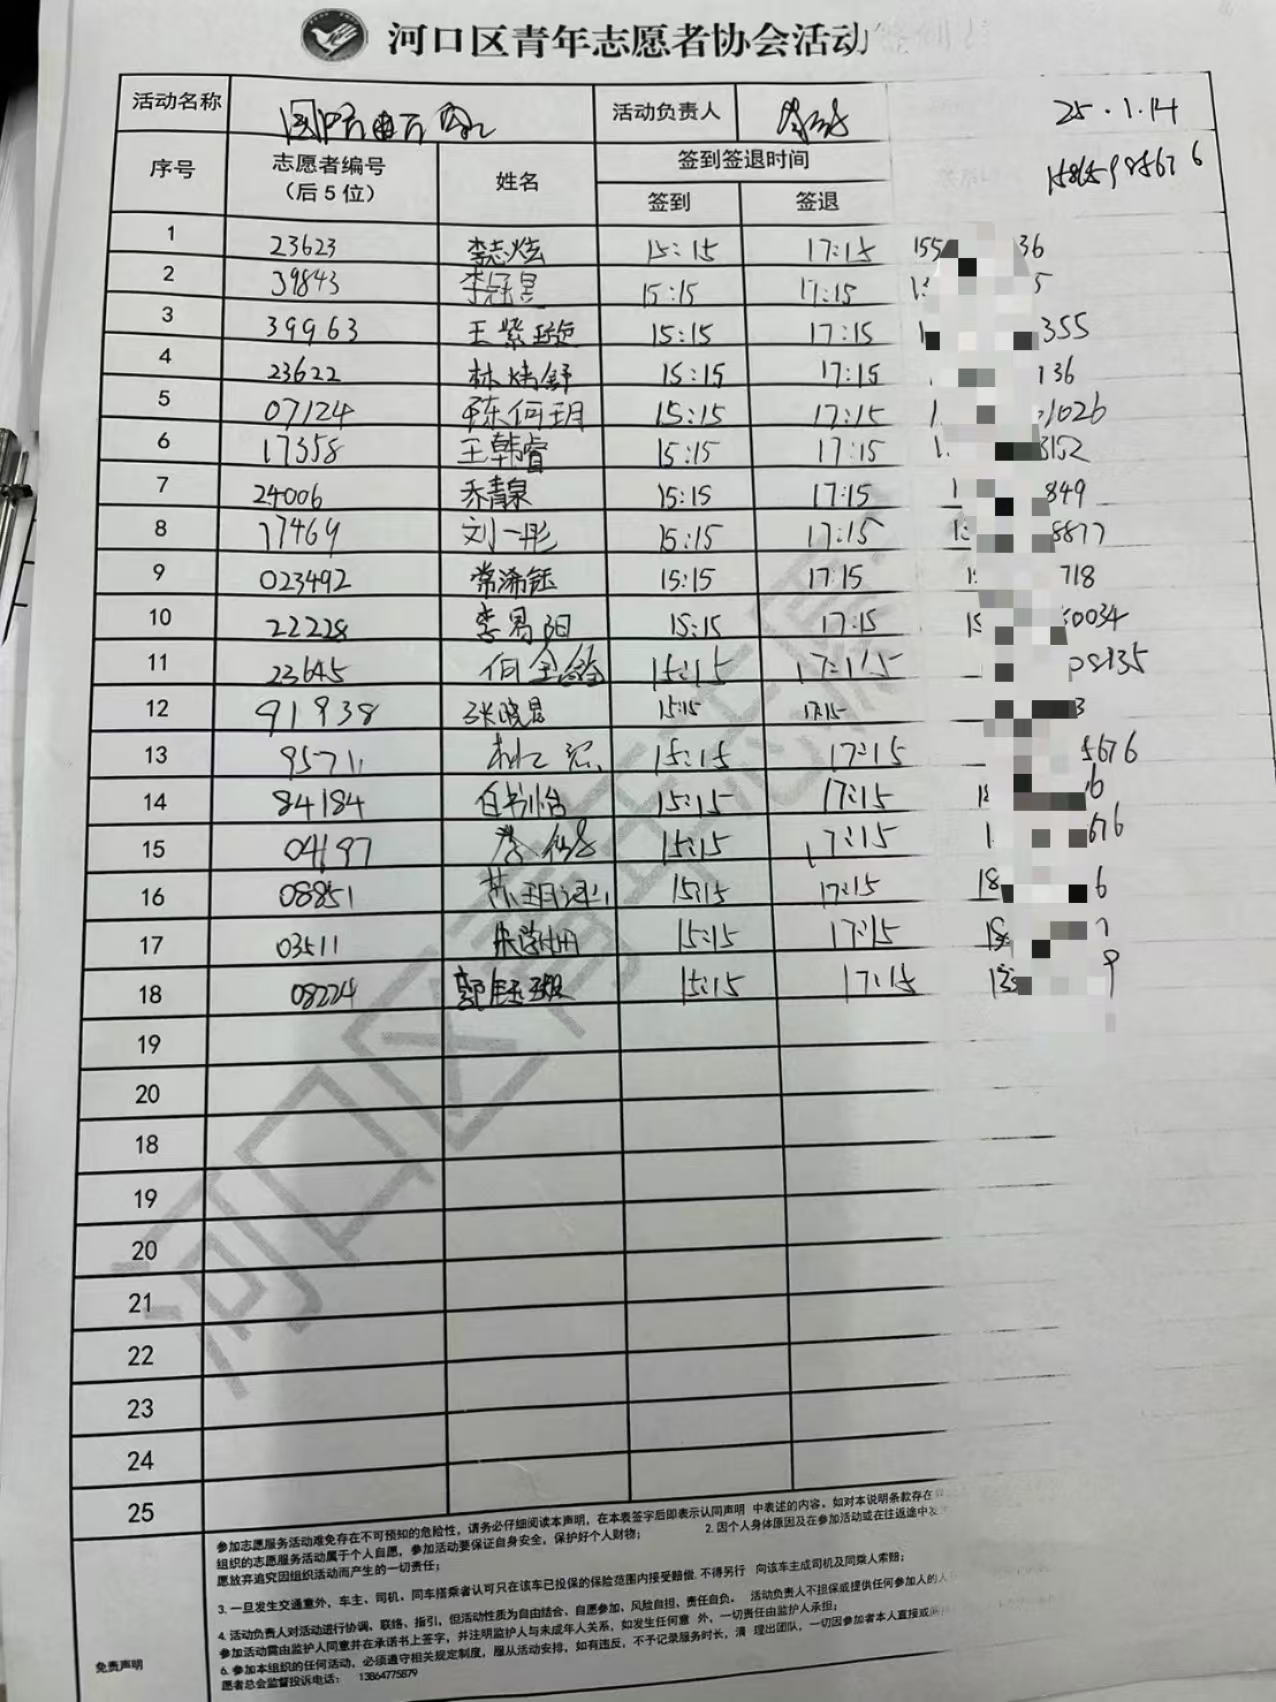 河口区青年志愿者协会活动
活动名称 活动负责人 25.1.14
序号 志愿者编号（后5位） 姓名 签到签退时间
签到 签退
1 23623 李志炫 15:15 17:15 155 36
2 39843 李冠昱 15:15 17:15 5
3 39963 王紫璇 15:15 17:15 355
4 23622 林炜舒 15:15 17:15 136
5 07124 陈何玥 15:15 17:15 1026
6 17358 王韩睿 15:15 17:15 3152
7 24006 乔清泉 15:15 17:15 849
8 17469 刘一彤 15:15 17:15 8877
9 023492 常浠钰 15:15 17:15 718
10 22228 李易阳 15:15 17:15 0034
11 23645 15:15 17:15 8135
12 91938 张晓昱 15:15 17:15 3
13 95711 15:15 17:15 5676
14 84184 白书怡 15:15 17:15 6
15 04197 15:15 17:15 676
16 08851 15:15 17:15 18 6
17 03511 15:15 17:15
18 08224 15:15 17:15 9
19
20
18
19
20
21
22
23
24
25
免责声明
参加志愿服务活动难免存在不可预知的危险性，请务必仔细阅读本声明，在本表签字后即表示认同声明 中表述的内容。如对本说明条款存在
组织的志愿服务活动属于个人自愿，参加活动要保证自身安全，保护好个人财物； 2. 因个人身体原因及在参加活动或在往返途中发
愿放弃追究因组织活动而产生的一切责任；
3. 一旦发生交通意外，车主、司机、同车搭乘者认可只在该车已投保的保险范围内接受赔偿.不得另行 向该车主成司机及同乘人索赔；
4. 活动负责人对活动进行协调、联络、指引，但活动性质为自由结合、自愿参加、风险自担、责任自负。 活动负责人不担保或提供任何参加人的人
参加活动需由监护人同意并在承诺书上签字，并注明监护人与未成年人关系，如发生任何意 外，一切责任由监护人承担；
6. 参加本组织的任何活动，必须遵守相关规定制度，服从活动安排，如有违反，不予记录服务时长，清 理出团队，一切因参加者本人直接或
愿者总会监督投诉电话： 13864775879
河口区青年志愿